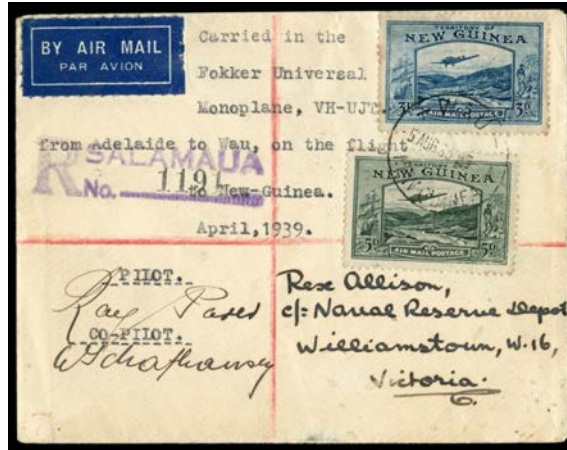 BY AIR MAIL
PAR AVION
Carried in the
Fokker Universal
Monoplane, VH-UJT.
from Adelaide to Wau, on the flight
to New-Guinea.
April, 1939.
R SALAMAUA
No. 1191
TERRITORY OF
NEW GUINEA
3D 3D
AIR MAIL POSTAGE
5 AUG
TERRITORY OF
NEW GUINEA
5D 5D
AIR MAIL POSTAGE
PILOT.
Ray Parer
CO-PILOT.
Rex Allison,
c/- Naval Reserve Depot
Williamstown, W.16,
Victoria.